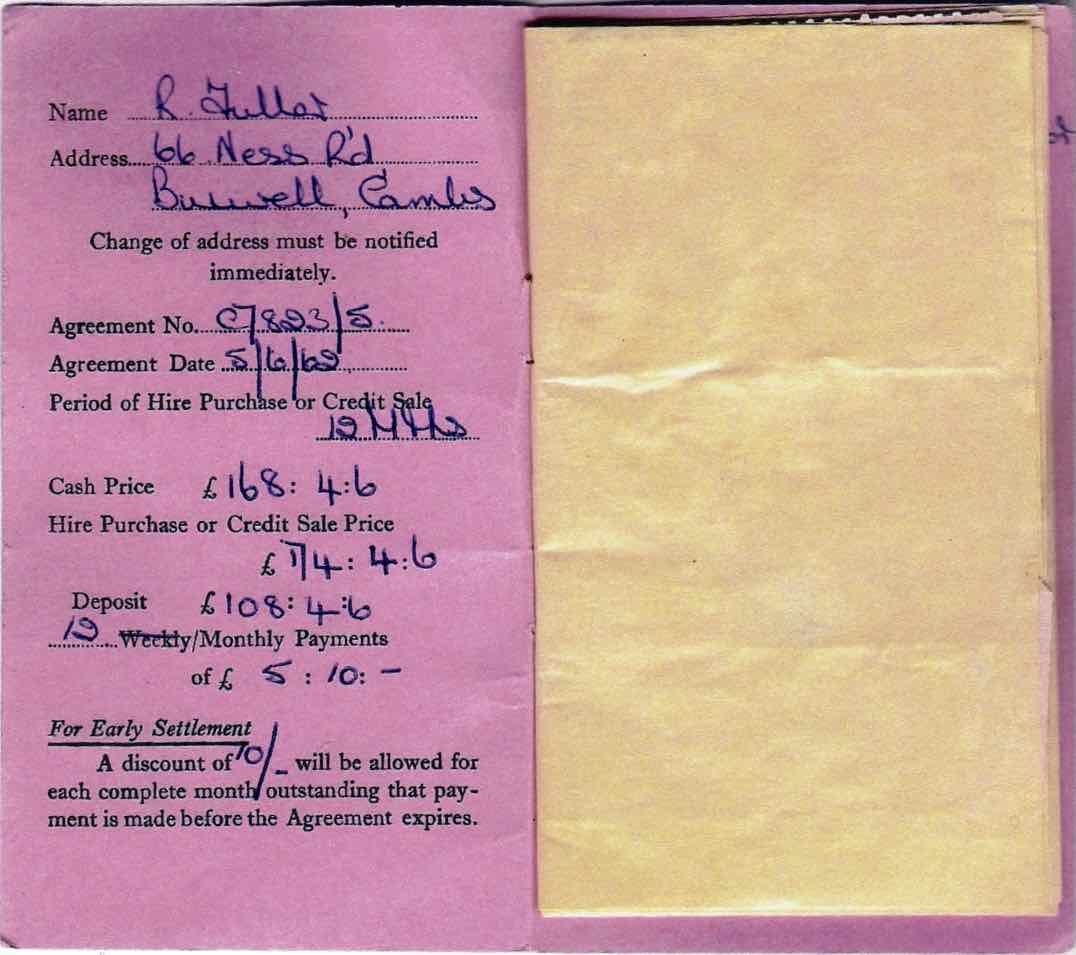 Name R. Fuller
Address 66 Ness R'd
Burwell, Cambs
Change of address must be notified
immediately.
Agreement No. C7823/5.
Agreement Date 5/6/62
Period of Hire Purchase or Credit Sale
12 Mths
Cash Price £168: 4:6
Hire Purchase or Credit Sale Price
£ 174: 4:6
Deposit £108: 4:6
12 Weekly/Monthly Payments
of £ 5 : 10: -
For Early Settlement
A discount of 10/- will be allowed for
each complete month outstanding that pay-
ment is made before the Agreement expires.